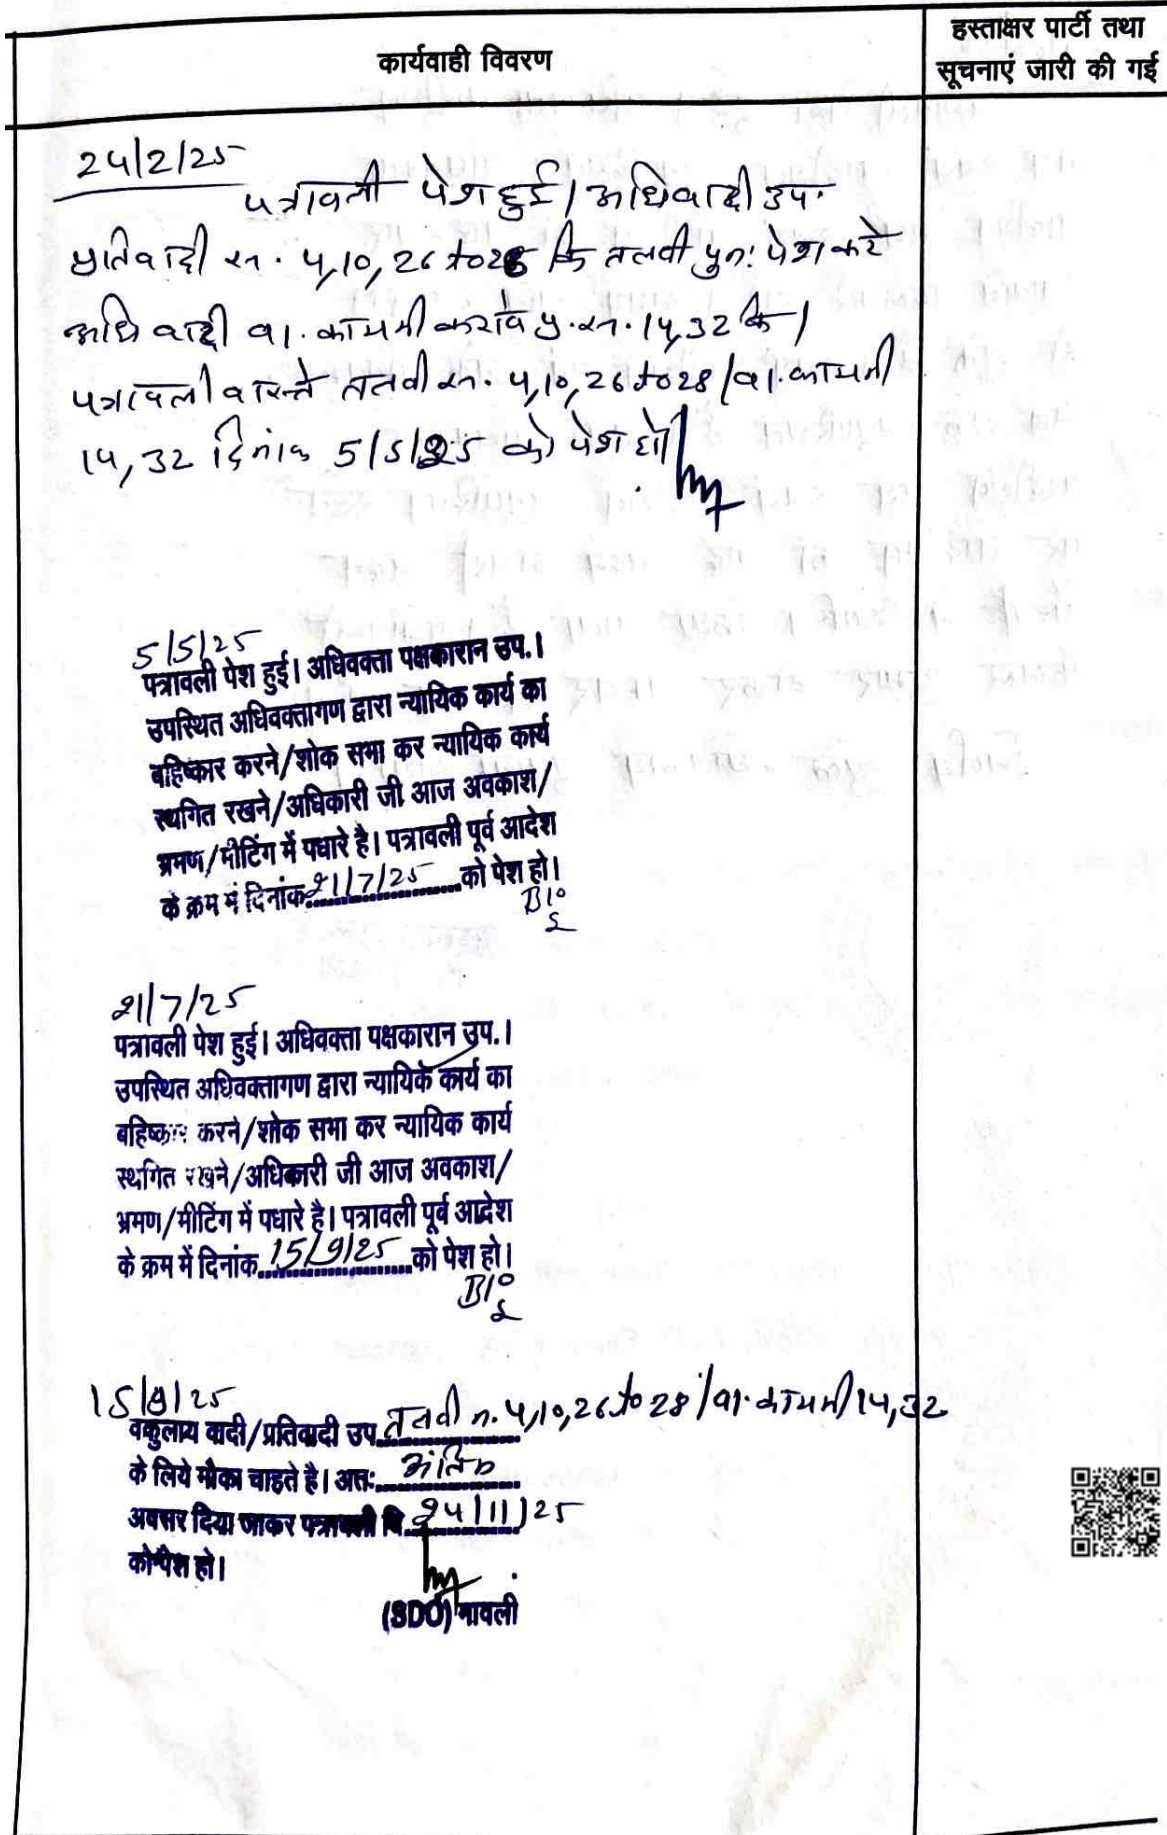 कार्यवाही विवरण
हस्ताक्षर पार्टी तथा
सूचनाएं जारी की गई
24/2/25
पत्रावली पेश हुई। अधिवादी उप.
प्रतिवादी स. 4,10,26 to 28 कि तलवी पुन: पेश करे
अधिवादी वा. कायमी करावे प्र.स. 14,32 कि।
पत्रावली वास्ते तलवी स. 4,10,26 to 28/वा. कायमी
14,32 दिनांक 5/5/25 को पेश हो
5/5/25
पत्रावली पेश हुई। अधिवक्ता पक्षकारान उप.।
उपस्थित अधिवक्तागण द्वारा न्यायिक कार्य का
बहिष्कार करने/शोक सभा कर न्यायिक कार्य
स्थगित रखने/अधिकारी जी आज अवकाश/
भ्रमण/मीटिंग में पधारे है। पत्रावली पूर्व आदेश
के क्रम में दिनांक 21/7/25 को पेश हो।
21/7/25
पत्रावली पेश हुई। अधिवक्ता पक्षकारान उप.।
उपस्थित अधिवक्तागण द्वारा न्यायिक कार्य का
बहिष्कार करने/शोक सभा कर न्यायिक कार्य
स्थगित रखने/अधिकारी जी आज अवकाश/
भ्रमण/मीटिंग में पधारे है। पत्रावली पूर्व आदेश
के क्रम में दिनांक 15/9/25 को पेश हो।
15/9/25
वकुलाय वादी/प्रतिवादी उप. तलवी न. 4,10,26 to 28/वा. कायमी 14,32
के लिये मौका चाहते है। अत: अंतिम
अवसर दिया जाकर पत्रावली दि. 24/11/25
को पेश हो।
(SDO) मावली